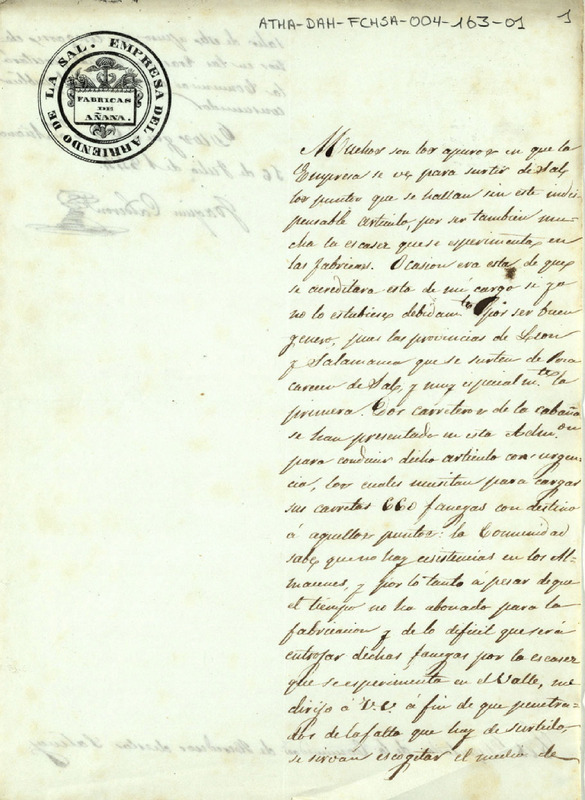 ATHA-DAH-FCHSA-004-163-01
1
EMPRESA DEL ARRIENDO DE LA SAL.
FABRICAS
DE
AÑANA.
Muchos son los apuros en que la
Empresa se ve para surtir de Sal
los puntos que se hallan sin este indis
pensable articulo, por ser tambien mu
cha la escasez que se esperimenta en
las fabricas. Ocasion era esta de que
se acreditara esta de mi cargo si ya
no lo estubiese debidam.te por ser buen
genero, pues las provincias de Leon
y Salamanca que se surten de
carecen de Sal, y muy especialm.te la
primera. Dos carreteros de la cabaña
se han presentado en esta Adm.on
para conducir dicho articulo con urgen
cia, los cuales necesitan para cargar
sus carretas 660 fanegas con destino
á aquellos puntos: la Comunidad
sabe que no hay ecsistencias en los Al-
macenes, y por lo tanto á pesar de que
el tiempo no ha abonado para la
fabricacion y de lo dificil que será
entrojar dichas fanegas por la escasez
que se esperimenta en el Valle, me
dirijo á V.V. á fin de que penetra-
dos de la falta que hay de surtido,
se sirvan escogitar el medio de